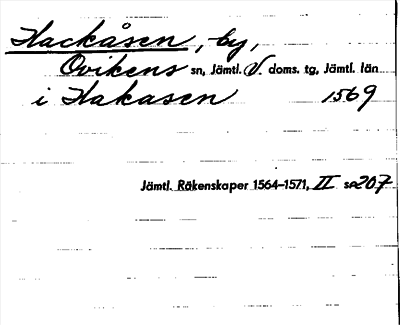 Hackåsen, by,
Ovikens sn, Jämtl. V. doms. tg, Jämtl. län
i Hakasen 1569
Jämtl. Räkenskaper 1564–1571, II s. 207